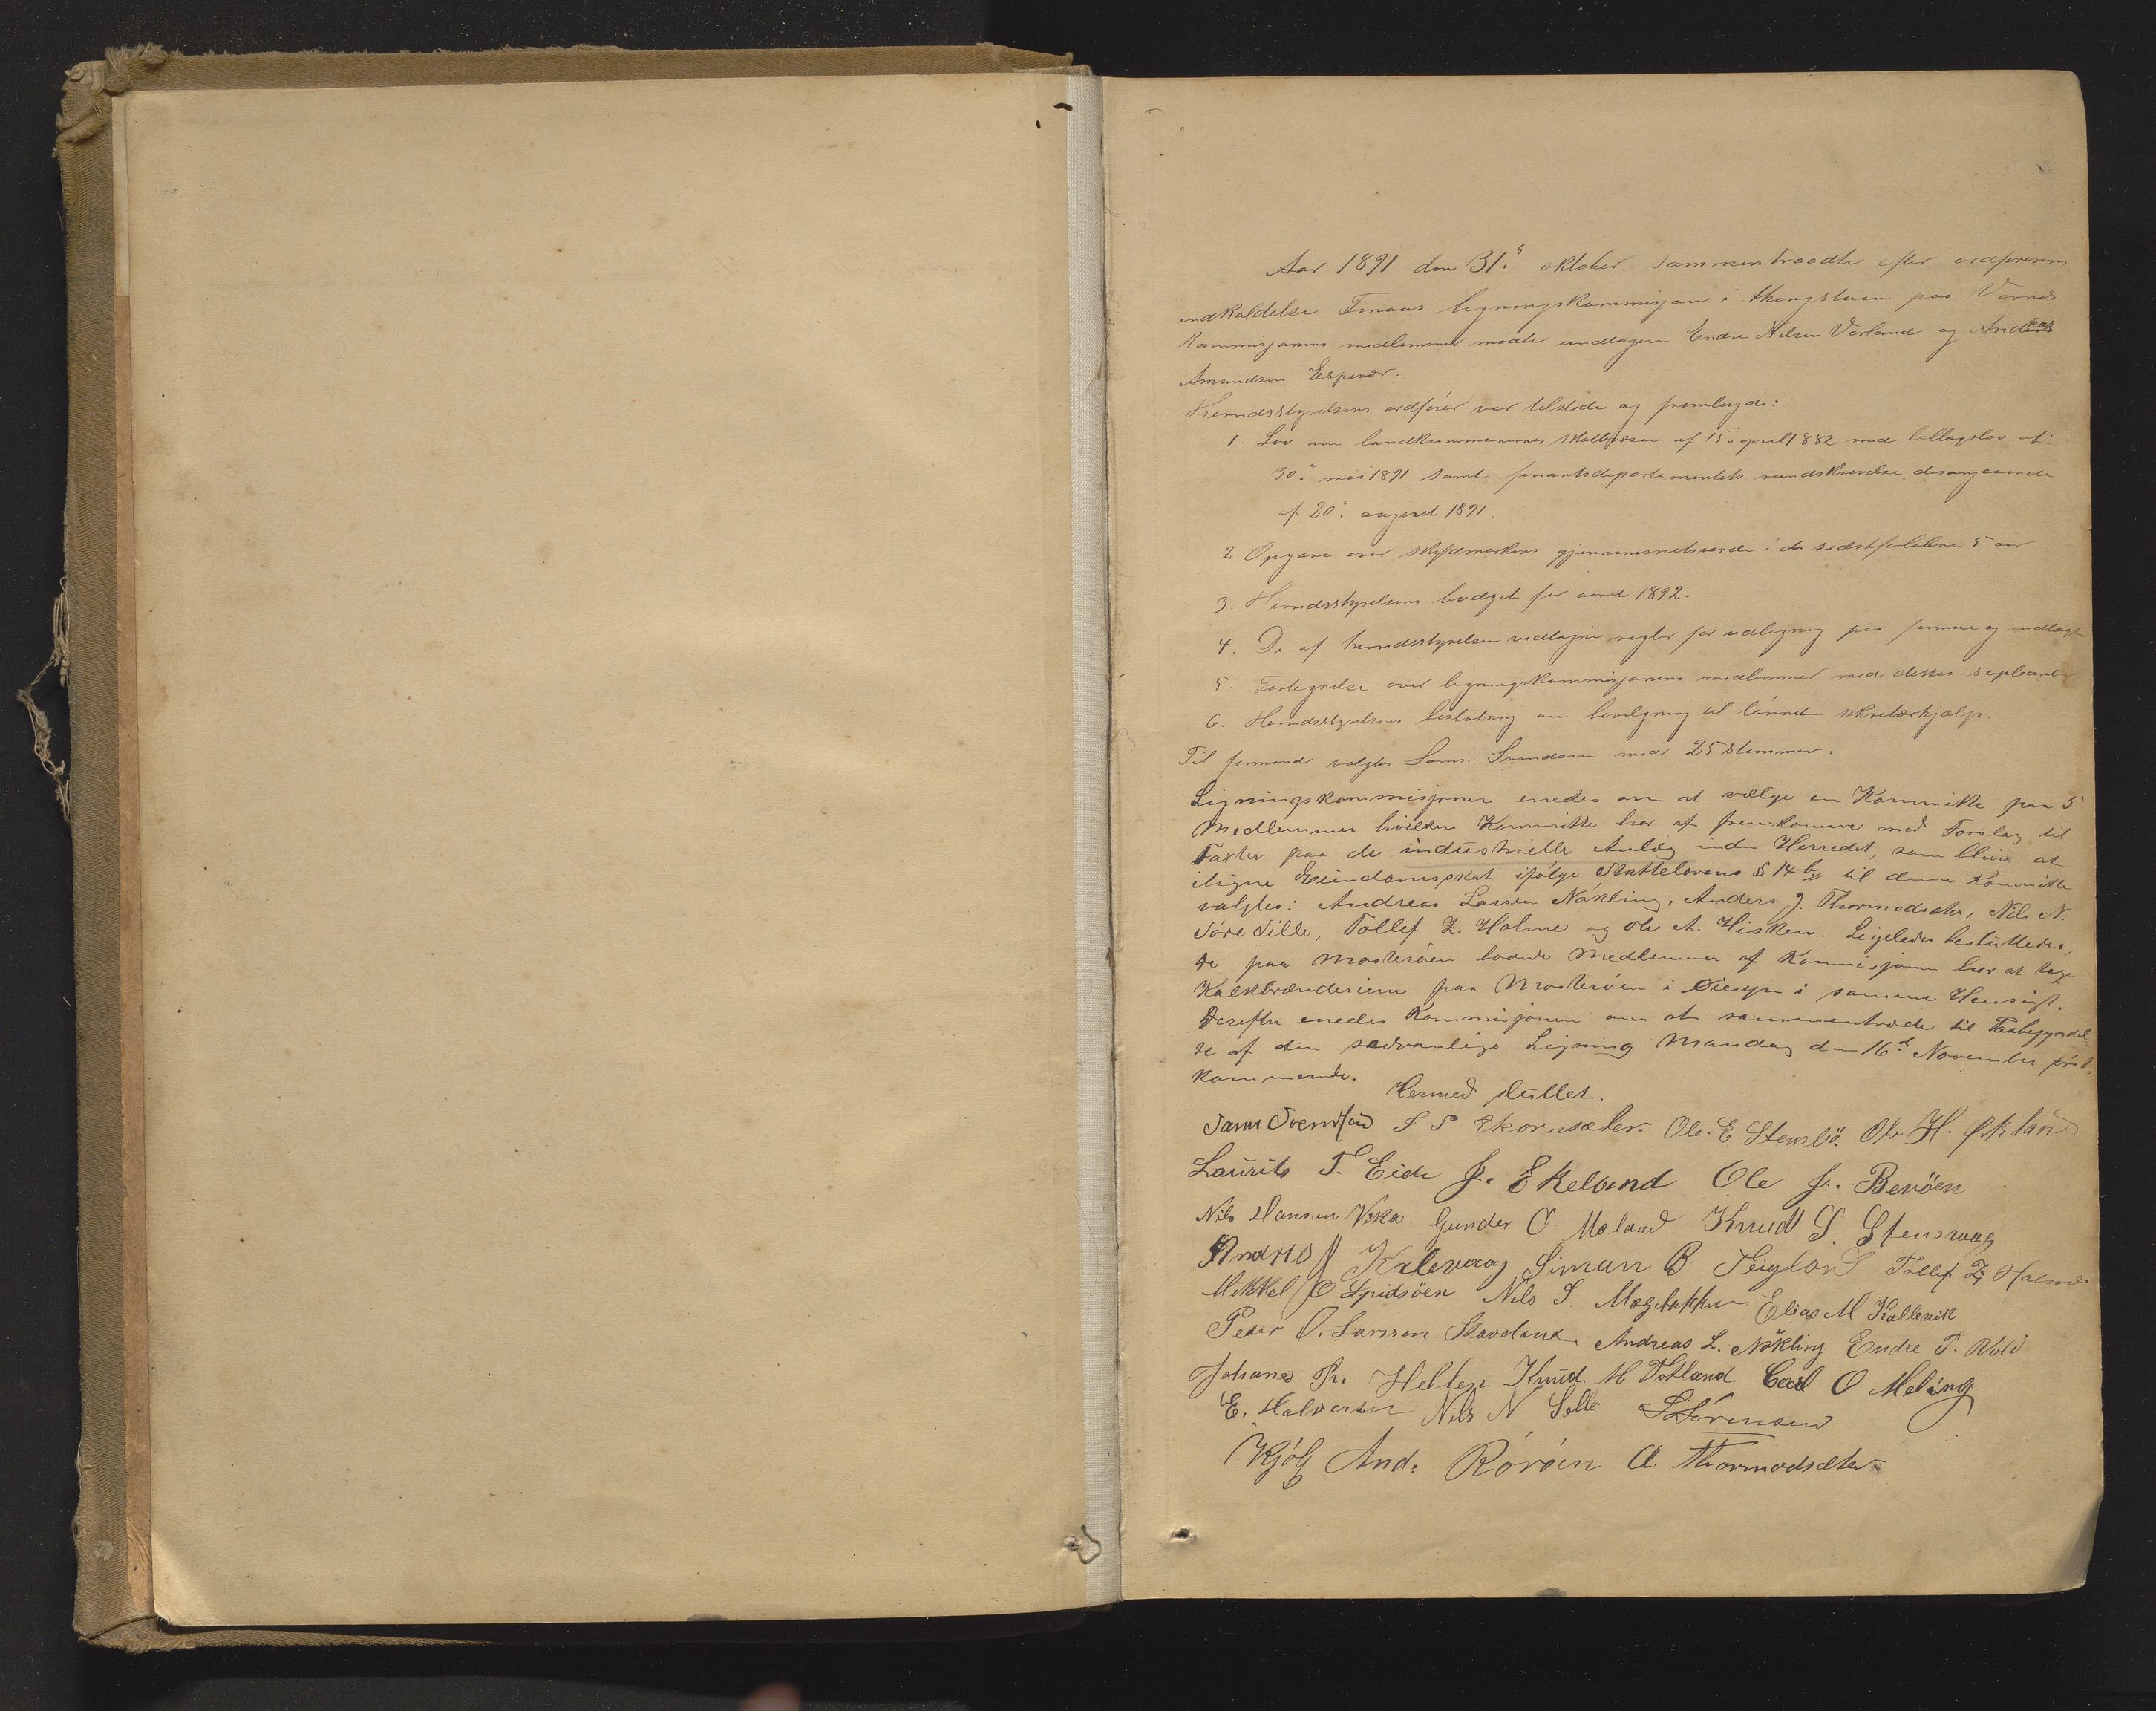 Aar 1891 den 31. oktober sammentraadte efter ordførerens
indkaldelse Finaas ligningskommisjon i thingstuen paa
Kommisjonens medlemmer mødte undtagen Endre Nilsen Vorland og Andreas
Amundsen Espevær.
Herredsstyrelsens ordfører var tilstede og fremlagde:
1. Lov om landkommunernes skattevæsen af 15. april 1882 med tillægslov af
30. mai 1891 samt finantsdepartementets rundskrivelse desangaaende
af 20. august 1891.
2 Opgave over skyldmarkens gjennemsnitsværde i de sidstforløbne 5 aar
3. Herredsstyrelsens budget for aaret 1892.
4. De af herredsstyrelsen vedtagne regler for udligning paa formue og indtægt
5. Fortegnelse over ligningskommisjonens medlemmer med disses supleanter
6. Herredsstyrelsens beslutning om bevilgning til lønnet sekretærhjælp.
Til formand valgtes Sams. Svendsen med 25 stemmer.
Ligningskommisjonen enedes om at vælge en Kommitte paa 5
Medlemmer hvilken Kommitte har at fremkomme med Forslag til
Taxter paa de industrielle Anlæg inden Herredet, som blive at
iligne Eiendomsskat ifølge Skattelovens § 14 b, til denne Kommitte
valgtes: Andreas Larsen Nökling, Anders J. Thormodsæter, Nils N.
Söre Sille, Tollef Z. Holme og Ole A. Hisken. Ligeledes besluttedes,
de paa Mosterøen boende Medlemmer af Kommisjonen har at tage
Kalkbrænderierne paa Mosterøen i Øiesyn i samme Hensigt.
Derefter enedes Kommisjonen om at sammentræde til Paabegyndel-
se af den sædvanlige Ligning Mandag den 16de November først-
kommende.
Hermed sluttet.
Sams Svendsen S S Ekornsæter. Ole. E Stensbö. Ole H. Økland
Laurits T. Eide J. Ekeland Ole J. Beröen
Nils Hansen Vika Gunder O Mæland Knud S. Stensvaag
Andreas Kalevaag Siman B Teigland Tollef Z Holme
Mikkel O Spidsöen Nils S. Elias M Kallevik
Peder O. Larssen Skovland. Andreas L. Nökling Endre T. Vold
Johanes Hellen Knud M Totland Carl O Meling
E. Halvorsen Nils N Selle S Sörensen
Kjöl And: Röröen A. Thormodsæter